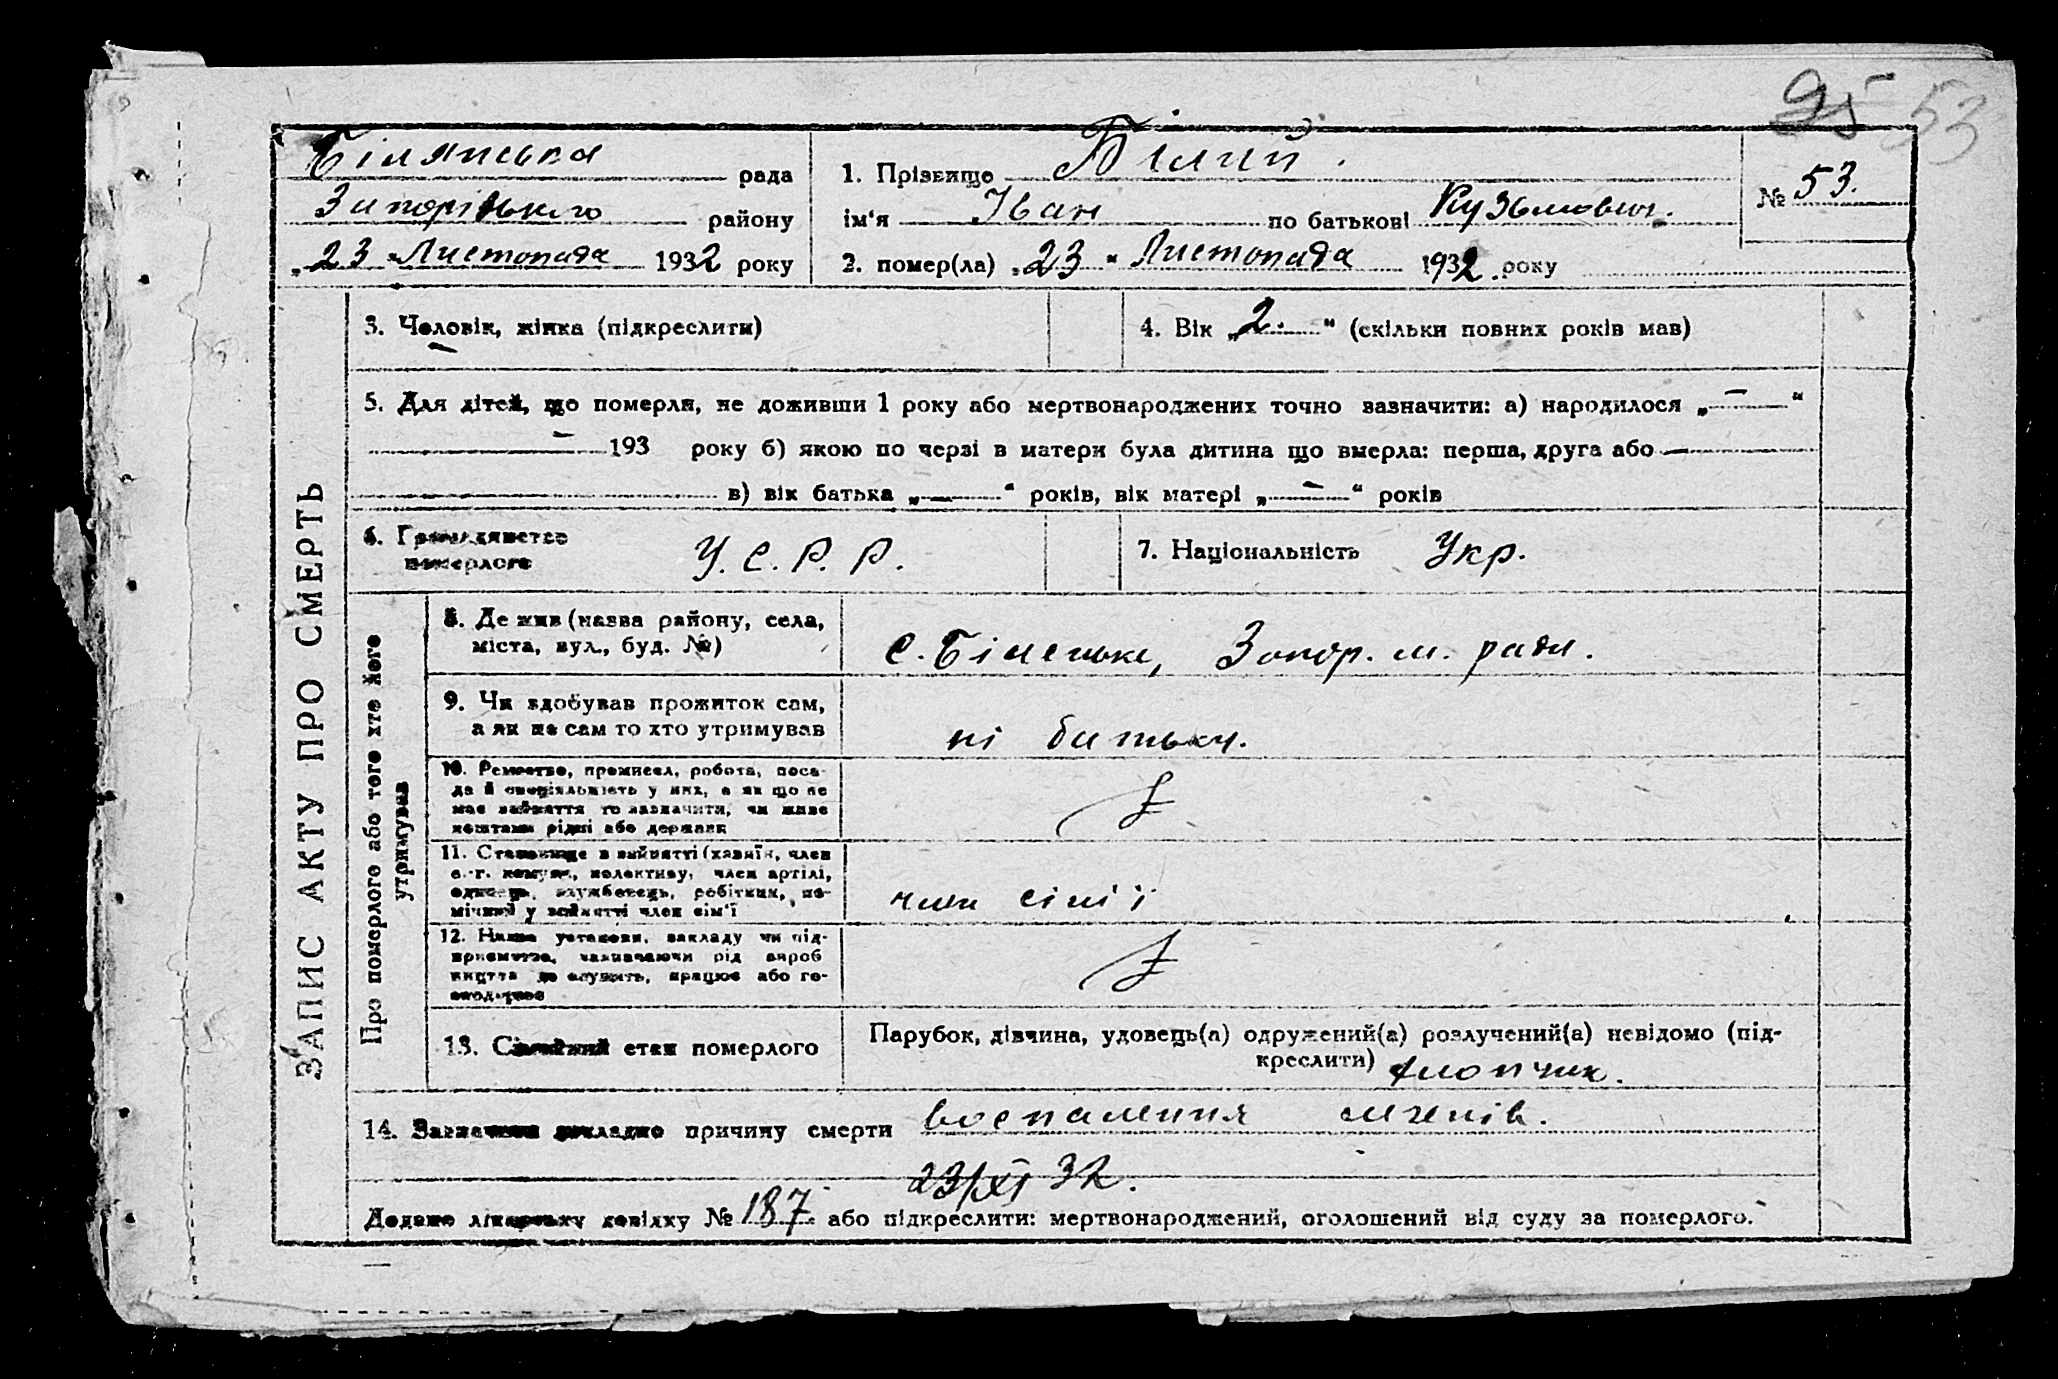 95 53
Білянська рада
Запорізького району
„23“ Листопада 1932 року
1. Прізвище Білий.
ім'я Іван по батькові Кузьмович.
№ 53.
2. помер(ла) „23“ Листопада 1932 року
ЗАПИС АКТУ ПРО СМЕРТЬ
3. Чоловік, жінка (підкреслити)
4. Вік „2.“ (скільки повних років мав)
5. Для дітей, що померли, не доживши 1 року або мертвонароджених точно зазначити: а) народилося „—“
— 193 року б) якою по черзі в матери була дитина що вмерла: перша, друга або —
в) вік батька „—“ років, вік матері „—“ років
6. Громадянство
померлого
У. С. Р. Р.
7. Національність Укр.
Про померлого або того хто його
утримував
8. Де жив (назва району, села,
міста, вул., буд. №)
с. Біленьке, Запор. м. ради.
9. Чи здобував прожиток сам,
а як не сам то хто утримував
ні батьки.
10. Ремество, промисел, робота, поса-
да й спеціяльність у них, а як що не
має заняття то зазначити, чи живе
коштами рідні або держави
11. Становище в занятті (хазяїн, член
с.-г. комуни, колективу, член артілі,
одинець, службовець, робітник, по-
мічний у занятті член сім'ї
член сім'ї
12. Назва установи, закладу чи під-
приємства, зазначаючи рід вироб
ництва де служить, працює або го-
сподарює
13. Сімейний стан померлого
Парубок, дівчина, удовець(а) одружений(а) розлучений(а) невідомо (під-
креслити) хлопчик.
14. Зазначити докладно причину смерти воспалення легенів.
23/XI 32.
Додано лікарську довідку № 187 або підкреслити: мертвонароджений, оголошений від суду за померлого.